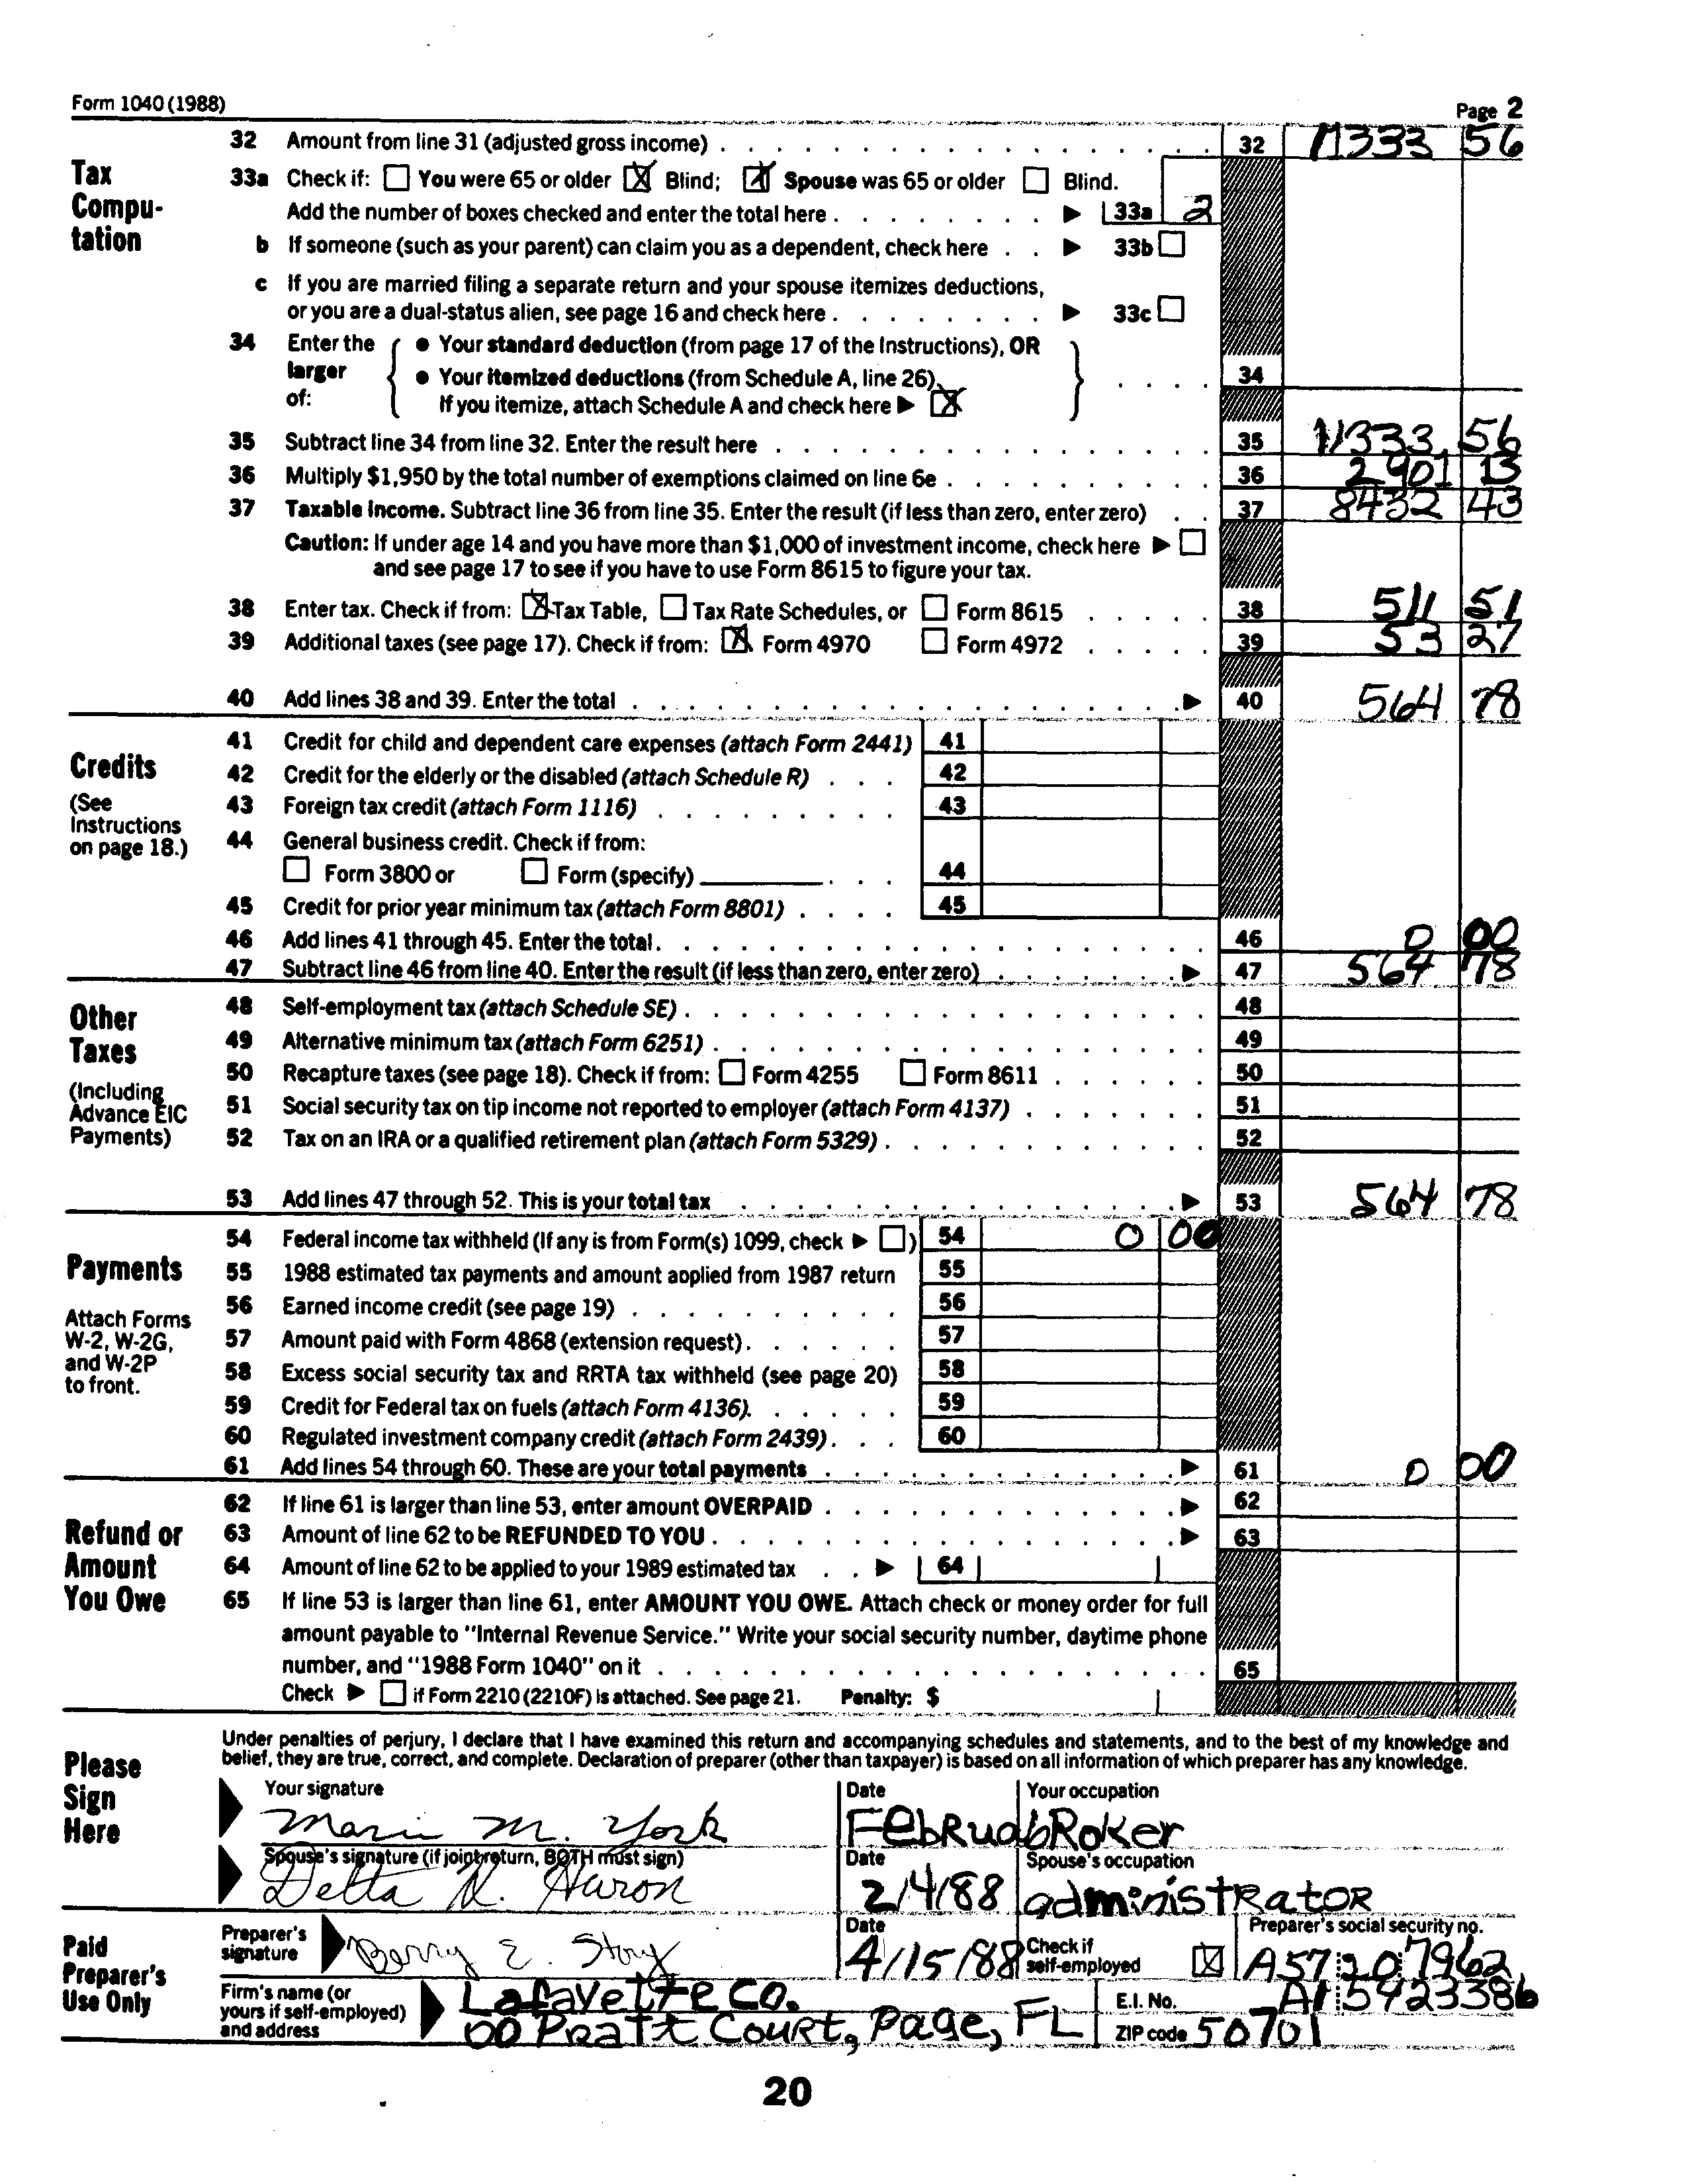 Form 1040 (1988) Page 2
Tax Compu-tation
32 Amount from line 31 (adjusted gross income) 32 11333 56
33a Check if: You were 65 or older X Blind; X Spouse was 65 or older Blind.
Add the number of boxes checked and enter the total here 33a 2
b If someone (such as your parent) can claim you as a dependent, check here 33b
c If you are married filing a separate return and your spouse itemizes deductions,
or you are a dual-status alien, see page 16 and check here 33c
34 Enter the larger of: { • Your standard deduction (from page 17 of the Instructions), OR
• Your itemized deductions (from Schedule A, line 26). 34
If you itemize, attach Schedule A and check here X }
35 Subtract line 34 from line 32. Enter the result here 35 11333 56
36 Multiply $1,950 by the total number of exemptions claimed on line 6e 36 2901 13
37 Taxable income. Subtract line 36 from line 35. Enter the result (if less than zero, enter zero) 37 8432 43
Caution: If under age 14 and you have more than $1,000 of investment income, check here
and see page 17 to see if you have to use Form 8615 to figure your tax.
38 Enter tax. Check if from: X Tax Table, Tax Rate Schedules, or Form 8615 38 511 51
39 Additional taxes (see page 17). Check if from: X Form 4970 Form 4972 39 53 27
40 Add lines 38 and 39. Enter the total 40 564 78
Credits
(See Instructions on page 18.)
41 Credit for child and dependent care expenses (attach Form 2441) 41
42 Credit for the elderly or the disabled (attach Schedule R) 42
43 Foreign tax credit (attach Form 1116) 43
44 General business credit. Check if from:
Form 3800 or Form (specify) 44
45 Credit for prior year minimum tax (attach Form 8801) 45
46 Add lines 41 through 45. Enter the total. 46 0 00
47 Subtract line 46 from line 40. Enter the result (if less than zero, enter zero) 47 564 78
Other Taxes
(Including Advance EIC Payments)
48 Self-employment tax (attach Schedule SE) 48
49 Alternative minimum tax (attach Form 6251) 49
50 Recapture taxes (see page 18). Check if from: Form 4255 Form 8611 50
51 Social security tax on tip income not reported to employer (attach Form 4137) 51
52 Tax on an IRA or a qualified retirement plan (attach Form 5329) 52
53 Add lines 47 through 52. This is your total tax 53 564 78
Payments
Attach Forms W-2, W-2G, and W-2P to front.
54 Federal income tax withheld (If any is from Form(s) 1099, check ) 54 0 00
55 1988 estimated tax payments and amount applied from 1987 return 55
56 Earned income credit (see page 19) 56
57 Amount paid with Form 4868 (extension request) 57
58 Excess social security tax and RRTA tax withheld (see page 20) 58
59 Credit for Federal tax on fuels (attach Form 4136). 59
60 Regulated investment company credit (attach Form 2439) 60
61 Add lines 54 through 60. These are your total payments 61 0 00
Refund or Amount You Owe
62 If line 61 is larger than line 53, enter amount OVERPAID 62
63 Amount of line 62 to be REFUNDED TO YOU 63
64 Amount of line 62 to be applied to your 1989 estimated tax 64
65 If line 53 is larger than line 61, enter AMOUNT YOU OWE. Attach check or money order for full
amount payable to "Internal Revenue Service." Write your social security number, daytime phone
number, and "1988 Form 1040" on it 65
Check if Form 2210 (2210F) is attached. See page 21. Penalty: $
Please Sign Here
Under penalties of perjury, I declare that I have examined this return and accompanying schedules and statements, and to the best of my knowledge and
belief, they are true, correct, and complete. Declaration of preparer (other than taxpayer) is based on all information of which preparer has any knowledge.
Your signature Date Your occupation
Mari M. York Februa broker
Spouse's signature (if joint return, BOTH must sign) Date Spouse's occupation
Delta N. Aaron 2/4/88 administrator
Paid Preparer's Use Only
Preparer's signature Date Check if self-employed X Preparer's social security no.
Berry E. Story 4/15/88 A57 20 7962
Firm's name (or yours if self-employed) and address E.I. No. ZIP code
Lafayette Co. A1 5423386
00 Pratt Court, Page, FL 50701
20